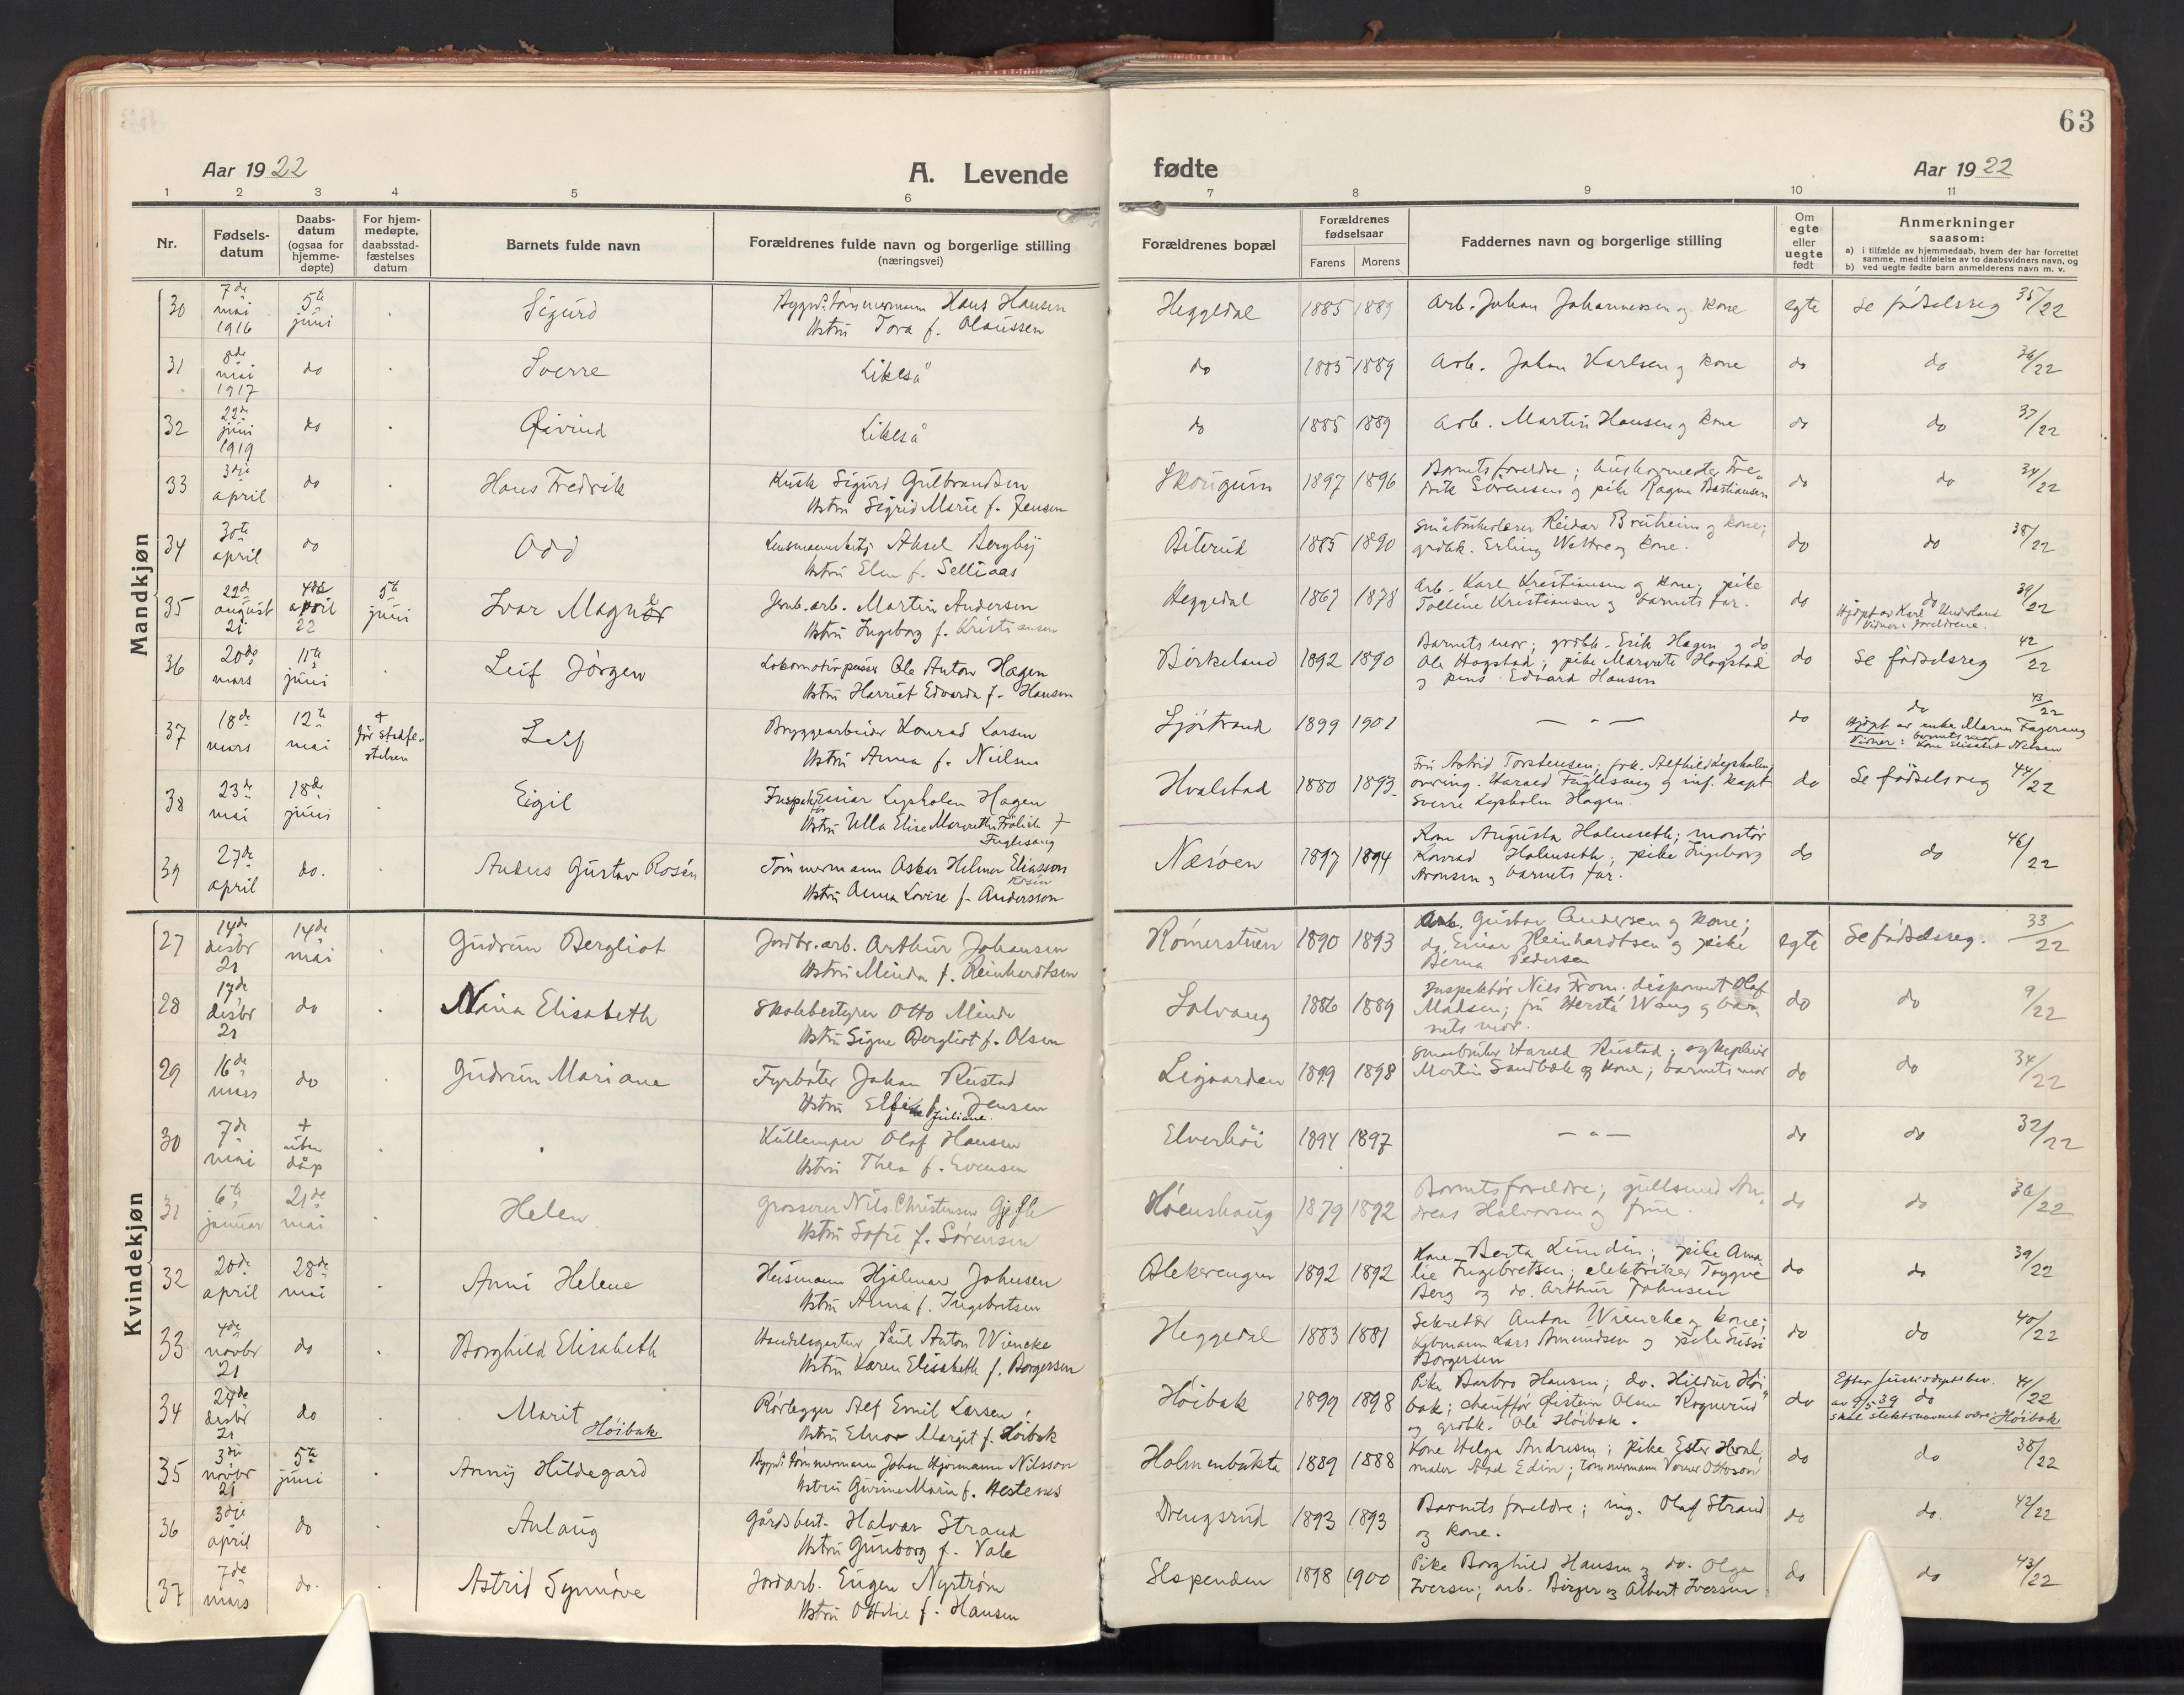 63
Aar 1922
A. Levende
fødte
Aar 1922
1 2 3 4 5 6 7 8 9 10 11
Nr.
Fødsels-
datum
Daabs-
datum
(ogsaa for
hjemme-
døpte)
For hjem-
medøpte,
daabsstad-
fæstelses
datum
Barnets fulde navn
Forældrenes fulde navn og borgerlige stilling
(næringsvei)
Forældrenes bopæl
Forældrenes
fødselsaar
Farens Morens
Faddernes navn og borgerlige stilling
Om
egte
eller
uegte
født
Anmerkninger
saasom:
a) i tilfælde av hjemmedaab, hvem der har forrettet
samme, med tilføielse av to daabsvidners navn, og
b) ved uegte fødte barn anmelderens navn m. v.
Mandkjøn
30 7de mai 1916 5te juni Sigurd
Bygn.tømmermann Hans Hansen
Hstru Tora f. Olaussen
Heggedal 1885 1889 Arb. Johan Johannessen og kone egte Se fødselsreg 35/22
31 8de mai 1917 do Sverre Likeså do 1885 1889 Arb. Johan Karlsen og kone do do 36/22
32 22de juni 1919 do Øivind Likeså do 1885 1889 Arb. Martin Hansen og kone do do 37/22
33 3dje april do Hans Fredrik
Kusk Sigurd Gulbrandsen
Hstru Sigrid Marie f. Jensen
Skougum 1897 1896
Barnets foreldre; hushovmester Fre-
drik Sørensen og pike Ragna Bastiansen
do do 34/22
34 30te april do Odd
Lensmannsbetj. Aksel Bergby
Hstru Elen f. Selliaas
Biterud 1885 1890
Småbrukerlærer Reidar Bruheim og kone;
grdbk. Erling Wettre og kone.
do do 38/22
35 22de august 21 4de april 22 5te juni Ivar Magner
Jernb.arb. Martin Andersen
Hstru Ingeborg f. Kristiansen
Heggedal 1867 1878
Arb. Karl Kristiansen og kone; pike
Tolline Kristiansen og barnets far.
do do 39/22
Hjdøpt av Karl Underland
Vidner: foreldrene.
36 20de mars 11te juni Leif Jørgen
Lokomotivpusser Ole Anton Hagen
Hstru Harriet Edvarda f. Hansen
Birkeland 1892 1890
Barnets mor; grdbk. Erik Hagen og do
Ole Hogstad; pike Margrete Hogstad
og pens. Edvard Hansen
do Se fødselsreg 42/22
37 18de mars 12te mai + før stadfe-
stelsen Leif
Bryggearbeider Konrad Larsen
Hstru Anna f. Nielsen
Sjøstrand 1899 1901 — " — do do 43/22
Hjdøpt av enke Maren Fagerang
Vidner: barnets mor
kone Elisabet Nielsen
38 23de mai 18de juni Eigil
Inspektør Einar Lysholm Hagen
Hstru Ulla Elise Margrethe Frölich f.
Fuglesang
Hvalstad 1880 1893
Fru Astrid Torstensen; frk. Alfhild Lysholm;
overing. Harald Fuglesang og inf. kapt.
Sverre Lysholm Hagen.
do Se fødselsreg 44/22
39 27de april do. Anders Gustav Rosén
Tømmermann Oskar Helmer Eliasson
Rosén
Hstru Anna Lovise f. Andersson
Nesøen 1897 1894
Kone Augusta Holmseth; monstør
Konrad Holmseth; pike Ingeborg
Aronsen og barnets far.
do do 46/22
Kvindekjøn
27 14de desbr 21 14de mai Gudrun Bergliot
Jordbr.arb. Arthur Johansen
Hstru Minda f. Reinhardtsen
Rømerstuen 1890 1893
Arb. Gustav Andersen og kone;
do Einar Reinhardtsen og pike
Berna Pedersen
egte Se fødselsreg. 33/22
28 17de desbr 21 do Nina Elisabeth
Skolebestyrer Otto Minde
Hstru Signe Bergliot f. Olsen
Solvang 1886 1889
Inspektør Nils From; disponent Olaf
Madsen; fru Hersta Wang og bar-
nets mor.
do do 9/22
29 16de mars do Gudrun Mariane
Fyrbøter Johan Rustad
Hstru Elfine f. Jensen
Juliane.
Ligaarden 1899 1898
Småbruker Harald Rustad; sykepleier
Martin Sandbæk og kone; barnets mor
do do 34/22
30 7de mai + uten dåp
Kullemper Olaf Hansen
Hstru Thea f. Evensen
Elverhøi 1894 1897 — " — do do 32/22
31 6te januar 21de mai Helen
Grosserer Nils Christensen Gjefle
Hstru Sofie f. Sørensen
Høenshaug 1879 1892
Barnets foreldre; gullsmed An-
dreas Halvorsen og frue.
do do 36/22
32 20de april 28de mai Anni Helene
Husmann Hjalmar Johnsen
Hstru Anna f. Ingebretsen
Blekerengen 1892 1892
Kone Berta Lundin; pike Ama-
lie Ingebretsen; elektriker Trygve
Berg og do. Arthur Johnsen
do do 39/22
33 4de novbr 21 do Borghild Elisabeth
Handelsgartner Paul Anton Wiencke
Hstru Karen Elisabeth f. Borgersen
Heggedal 1883 1881
Sekretær Anton Wiencke og kone;
Kjøbmann Lars Amundsen og pike Sussi
Borgersen
do do 40/22
34 24de desbr 21 do Marit
Høibak
Rørlegger Alf Emil Larsen
Hstru Elnor Margit f. Høibak
Høibak 1899 1898
Pike Barbro Hansen; do. Hildur Høi-
bak; chauffør Øistein Olsen Rognerud
og grdbk. Ole Høibak.
do Efter justisdeptsbev.
av 9/5 39 do 41/22
skal slektsnavnet være: Høibak
35 3dje novbr 21 5te juni Anny Hildegard
Bygn.tømmermann Johan Hjormann Nilsson
Hstru Gunne Marie f. Hestenes
Holmenbukta 1889 1888
Kone Helga Andresen; pike Ester Hval
maler Alad Edin; tømmermann Verner Ottoson
do do 38/22
36 3dje april do Aulaug
Gårdsbest. Halvar Strand
Hstru Gunborg f. Vale
Drengsrud 1893 1893
Barnets foreldre; ing. Olaf Strand
og kone.
do do. 42/22
37 7de mars do. Astrid Synnøve
Jordarb. Eugen Nystrøm
Hstru Ottilie f. Hansen
Slependen 1898 1900
Pike Borghild Hansen og do. Olga
Iversen; arb. Birger og Albert Iversen
do do 43/22